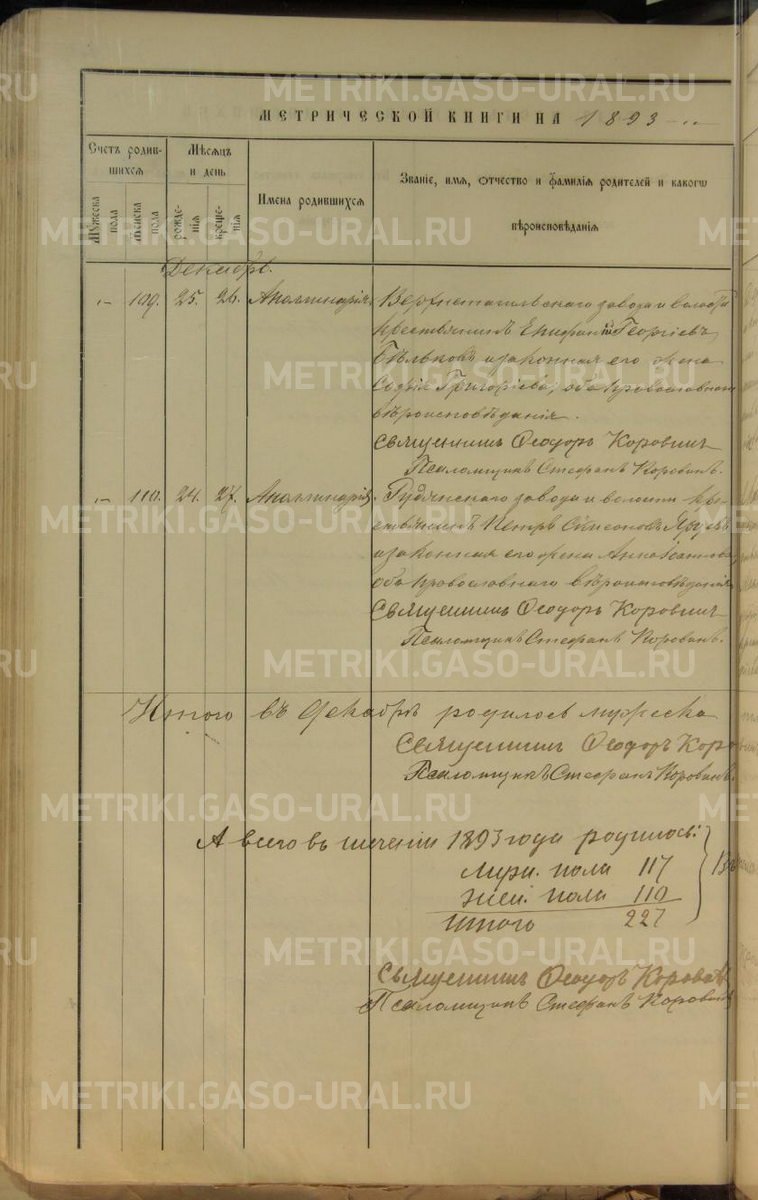 МЕТРИЧЕСКОЙ КНИГИ НА 1893
Счетъ родив-
шихся
Мѣсяцъ
и день
Имена родившихся
Званіе, имя, отчество и фамилія родителей и какого
вѣроисповѣданія
Мужеска
пола
Женска
пола
рожде-
нія
креще-
нія
Декабрь.
109. 25. 26. Аполлинарія. Верхнетагильскаго завода и волости
крестьянинъ Епифаній Георгіевъ
Бѣльковъ и законная его жена
Софія Григоріева, оба православнаго
вѣроисповѣданія.
Священникъ Ѳеодоръ Коровинъ
Псаломщикъ Стефанъ Коровинъ.
110. 24. 27. Аполлинарія. Рудянскаго завода и волости кре-
стьянинъ Петръ Симеоновъ
и законная его жена Анна
оба православнаго вѣроисповѣданія
Священникъ Ѳеодоръ Коровинъ
Псаломщикъ Стефанъ Коровинъ.
Итого въ декабрѣ родилось мужеска
Священникъ Ѳеодоръ Коро
Псаломщикъ Стефанъ Коровинъ.
А всего въ теченіи 1893 года родилось:
Муж. пола 117
Жен. пола 110
Итого 227
Священникъ Ѳеодоръ Коровин
Псаломщикъ Стефанъ Коровинъ
METRIKI.GASO-URAL.RU